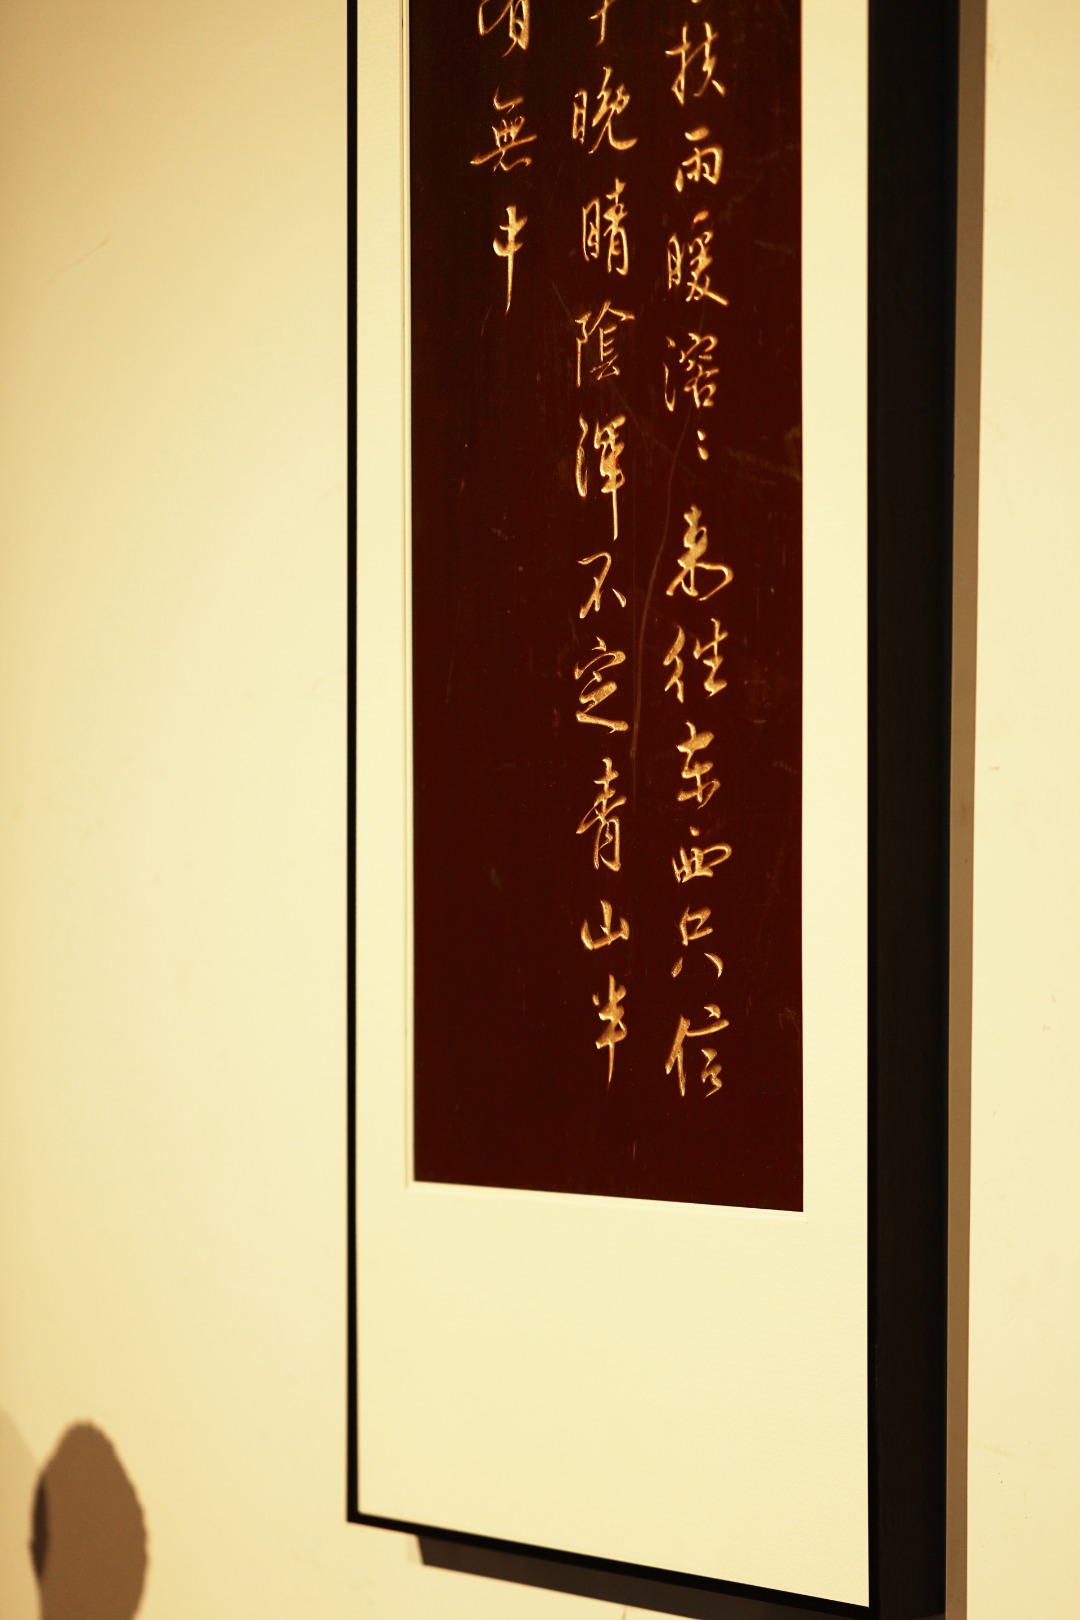 扶雨暖溶〻来往东西只信
晚晴陰渾不定青山半
有無中